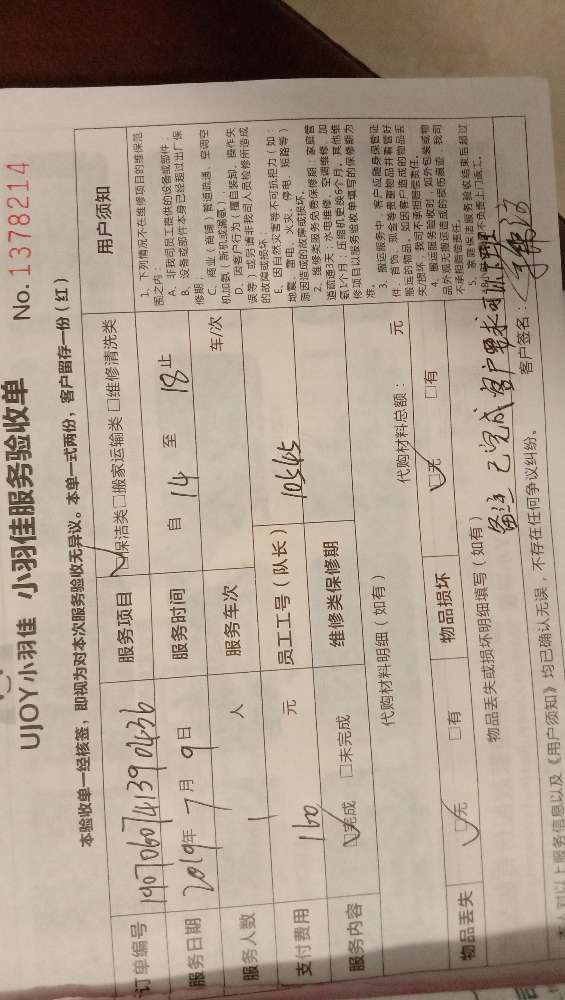 UJOY小羽佳 小羽佳服务验收单
No. 1378214
本验收单一经核签，即视为对本次服务验收无异议。本单一式两份，客户留存一份（红）
订单编号 190706074139 服务项目 ☑保洁类□搬家运输类 □维修清洗类
服务日期 2019年 7 月 9 日 服务时间 自 14 至 18 止
服务人数 1 人 服务车次 车/次
支付费用 160 元 员工工号（队长）
服务内容 ☑完成 □未完成 维修类保修期
代购材料明细（如有） 代购材料总额： 元
物品丢失 ☑无 □有 物品损坏 ☑无 □有
物品丢失或损坏明细填写（如有）
备注 已完成 客户要求
本人对以上服务信息以及《用户须知》均已确认无误，不存在任何争议纠纷。 客户签名：
用户须知
1. 下列情况不在维修项目的维保范
围之内：
A. 非我司员工提供的设备或部件；
B. 设备或部件本身已经超过出厂保
修期；
C. 商业（商铺）管道疏通、空调空
机加氨（新机或漏氨）；
D. 因客户行为（擅自装卸、操作失
误等）或另请非我司人员检修所造成
的故障或损坏；
E. 因自然灾害等不可抗拒力（如：
地震、雷电、火灾、停电、短路等）
原因造成的故障或损坏。
2. 维修类服务免费保修期：家庭管
道疏通3天；水电维修、空调维修、加
氨1个月；压缩机更换6个月，其他维
修项目以服务验收单填写的保修期为
准。
3. 搬运服务中，客户应随身保管证
件、首饰、现金等贵重物品并看管好
搬运的物品，如因客户造成的物品丢
失/损坏，我司不承担赔偿责任。
4. 搬运服务验收时，如外包装或物
品外观无搬运造成的损伤痕迹，我司
不承担赔偿责任。
5. 家庭保洁服务验收结束后超过